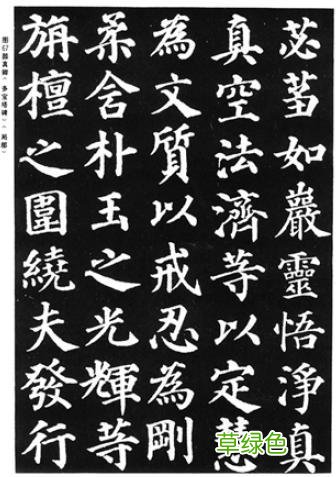 苾蒭如巖靈悟淨真
真空法濟等以定慧
為文質以戒忍為剛
柔含朴玉之光輝等
旃檀之圍繞夫發行
图67颜真卿《多宝塔碑》（局部）
草绿色